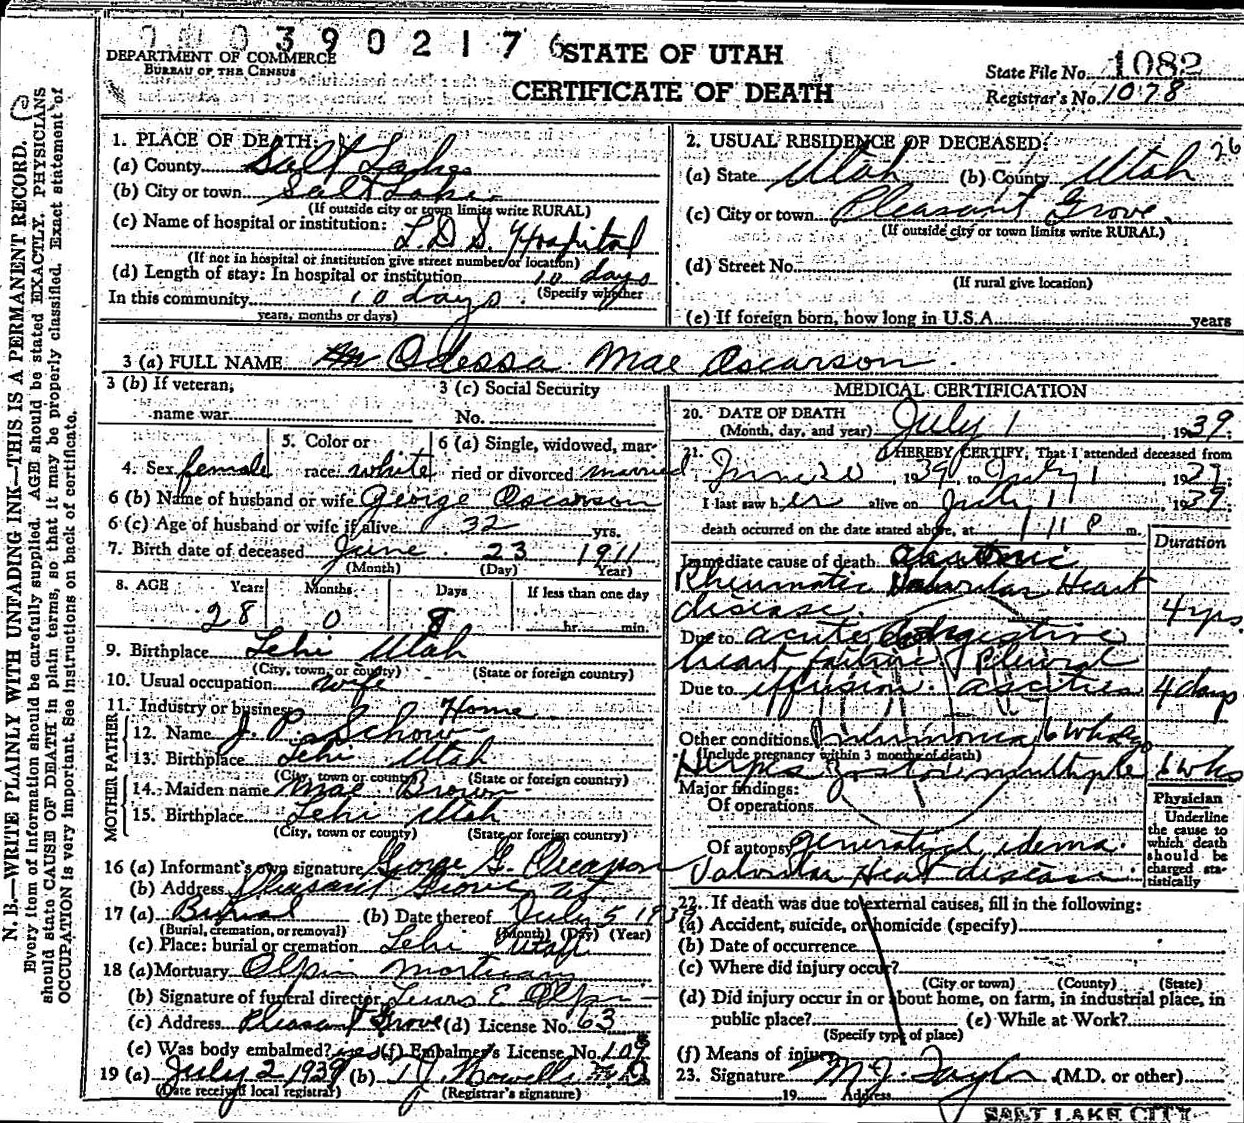 0 0 0 3 9 0 2 1 7 6
DEPARTMENT OF COMMERCE
BUREAU OF THE CENSUS
STATE OF UTAH
CERTIFICATE OF DEATH
State File No. 1082
Registrar's No. 1078
N. B.—WRITE PLAINLY WITH UNFADING INK—THIS IS A PERMANENT RECORD.
Every item of information should be carefully supplied. AGE should be stated EXACTLY. PHYSICIANS
should state CAUSE OF DEATH in plain terms, so that it may be properly classified. Exact statement of
OCCUPATION is very important. See instructions on back of certificate.
1. PLACE OF DEATH:
(a) County Salt Lake
(b) City or town Salt Lake
(If outside city or town limits write RURAL)
(c) Name of hospital or institution:
L.D.S. Hospital
(If not in hospital or institution give street number or location)
(d) Length of stay: In hospital or institution 10 days
(Specify whether
In this community 10 days
years, months or days)
2. USUAL RESIDENCE OF DECEASED:
26
(a) State Utah (b) County Utah
(c) City or town Pleasant Grove
(If outside city or town limits write RURAL)
(d) Street No.
(If rural give location)
(e) If foreign born, how long in U.S.A. years
3 (a) FULL NAME Odessa Mae Oscarson
3 (b) If veteran, name war
3 (c) Social Security No.
4. Sex female
5. Color or race white
6 (a) Single, widowed, married or divorced married
6 (b) Name of husband or wife George Oscarson
6 (c) Age of husband or wife if alive 32 yrs.
7. Birth date of deceased June 23 1911
(Month) (Day) Year)
8. AGE Years Months Days If less than one day
28 0 8 hr. min.
9. Birthplace Lehi Utah
(City, town, or county) (State or foreign country)
10. Usual occupation wife
11. Industry or business Home
FATHER
12. Name J. P. Schow
13. Birthplace Lehi Utah
(City, town or county) (State or foreign country)
MOTHER
14. Maiden name Mae Brown
15. Birthplace Lehi Utah
(City, town or county) (State or foreign country)
16 (a) Informant's own signature George G. Oscarson
(b) Address Pleasant Grove Ut
17 (a) Burial (b) Date thereof July 5 1939
(Burial, cremation, or removal) (Month) (Day) (Year)
(c) Place: burial or cremation Lehi Utah
18 (a) Mortuary Olpin Mortuary
(b) Signature of funeral director Lewis E Olpin
(c) Address Pleasant Grove (d) License No. 63
(e) Was body embalmed? yes (f) Embalmer's License No. 108
19 (a) July 2 1939 (b) T. J. Howells
(Date received local registrar) (Registrar's signature)
MEDICAL CERTIFICATION
20. DATE OF DEATH
(Month, day, and year) July 1, 1939
21. I HEREBY CERTIFY, That I attended deceased from
June 20, 1939, to July 1, 1939
I last saw her alive on July 1, 1939
death occurred on the date stated above, at 1:11 P m.
Duration
Immediate cause of death Chronic
Rheumatic Valvular Heart
disease. 4 yrs.
Due to acute congestive
heart failure & Plural
Due to effusion. ascities 4 days
Other conditions Pneumonia 6 wks
(Include pregnancy within 3 months of death)
Herpes Zoster multiple 6 wks
Major findings:
Of operations
Of autopsy generalized edema.
Valvular Heart disease.
Physician
Underline
the cause to
which death
should be
charged sta-
tistically
22. If death was due to external causes, fill in the following:
(a) Accident, suicide, or homicide (specify)
(b) Date of occurrence
(c) Where did injury occur?
(City or town) (County) (State)
(d) Did injury occur in or about home, on farm, in industrial place, in
public place? (e) While at Work?
(Specify type of place)
(f) Means of injury
23. Signature M. J. Taylor (M.D. or other)
19 Address
SALT LAKE CITY